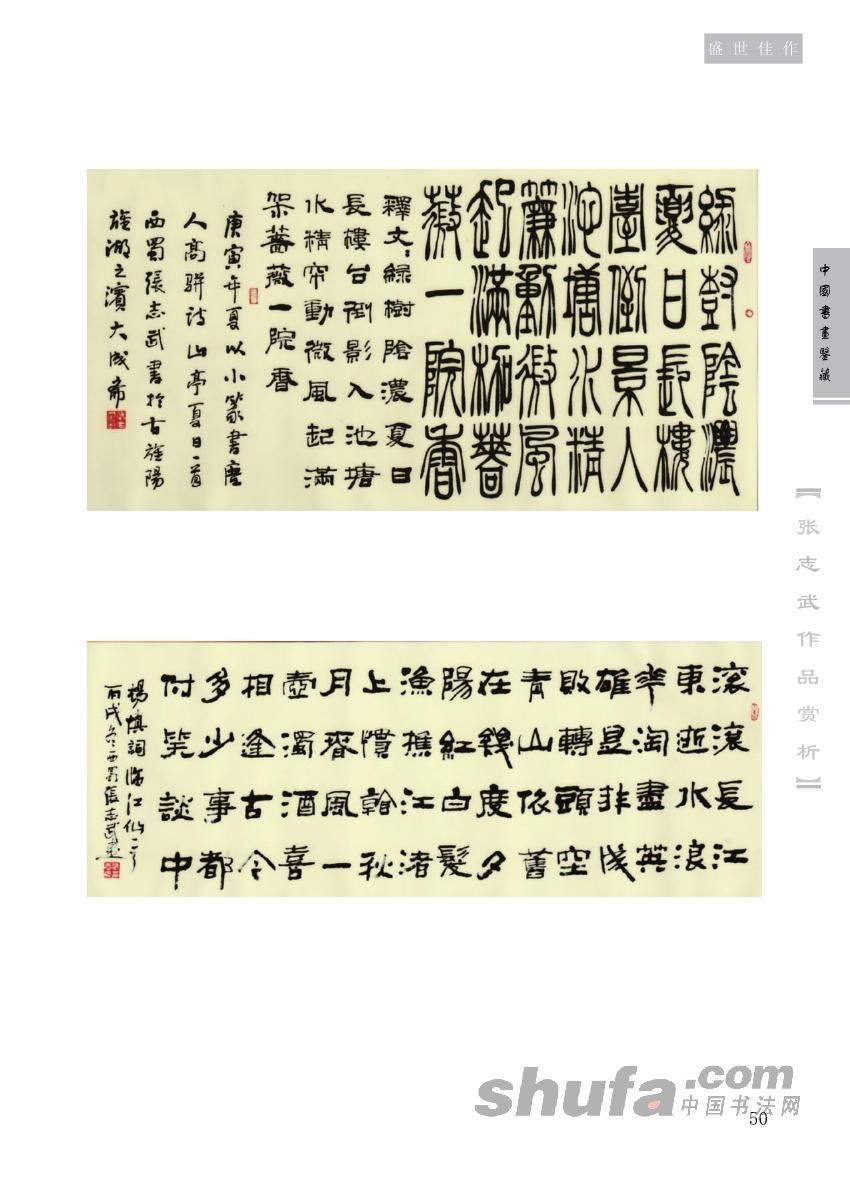 盛世佳作
綠尌陰濃
夏日長樓
臺倒景入
池塘水精
簾動微風
起滿架薔
薇一院香
釋文：綠樹陰濃夏日
長樓台倒影入池塘
水精帘動微風起滿
架薔薇一院香
庚寅年夏以小篆書唐
人高駢詩山亭夏日一首
西蜀張志武書於古雒陽
雒湖之濱大成斋
中國書畫鑒藏
【张志武作品赏析】
滚滚長江
東逝水浪
華淘盡英
雄是非成
敗轉頭空
青山依舊
在幾度夕
陽紅白髮
漁樵江渚
上慣看秋
月春風一
壺濁酒喜
相逢古今
多少事都
付笑談中
楊慎詞臨江仙一首
丙戌冬西蜀張志武書
shufa.com
中国书法网
50